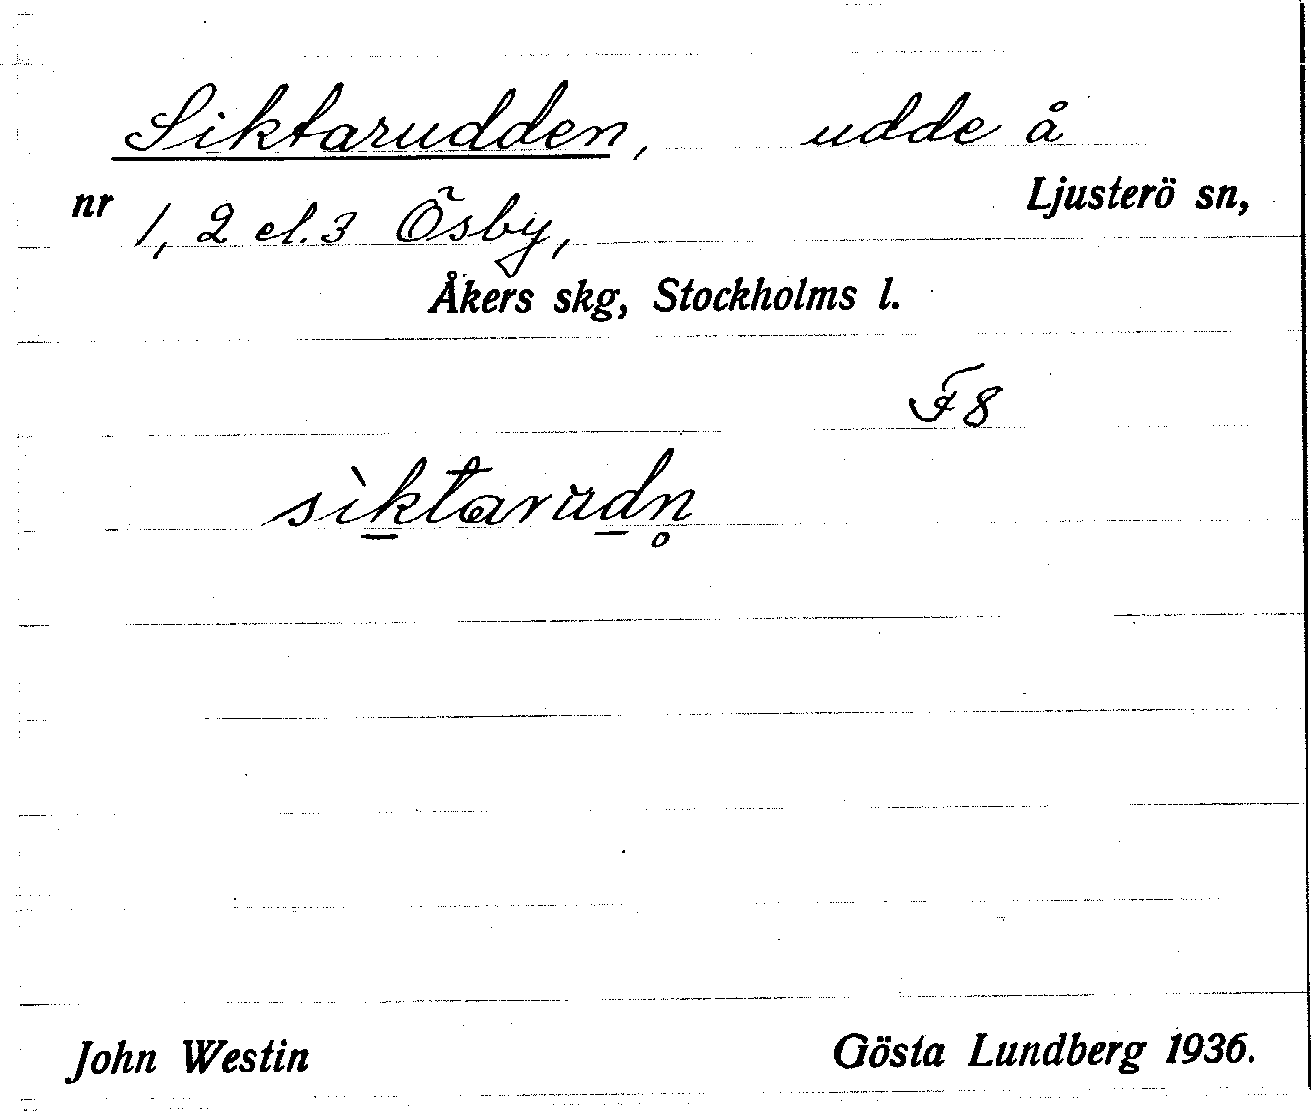 Siktarudden, udde å
nr 1, 2 el. 3 Ösby, Ljusterö sn,
Åkers skg, Stockholms l.
F8
sìk̲tarüd̲n̥
John Westin Gösta Lundberg 1936.